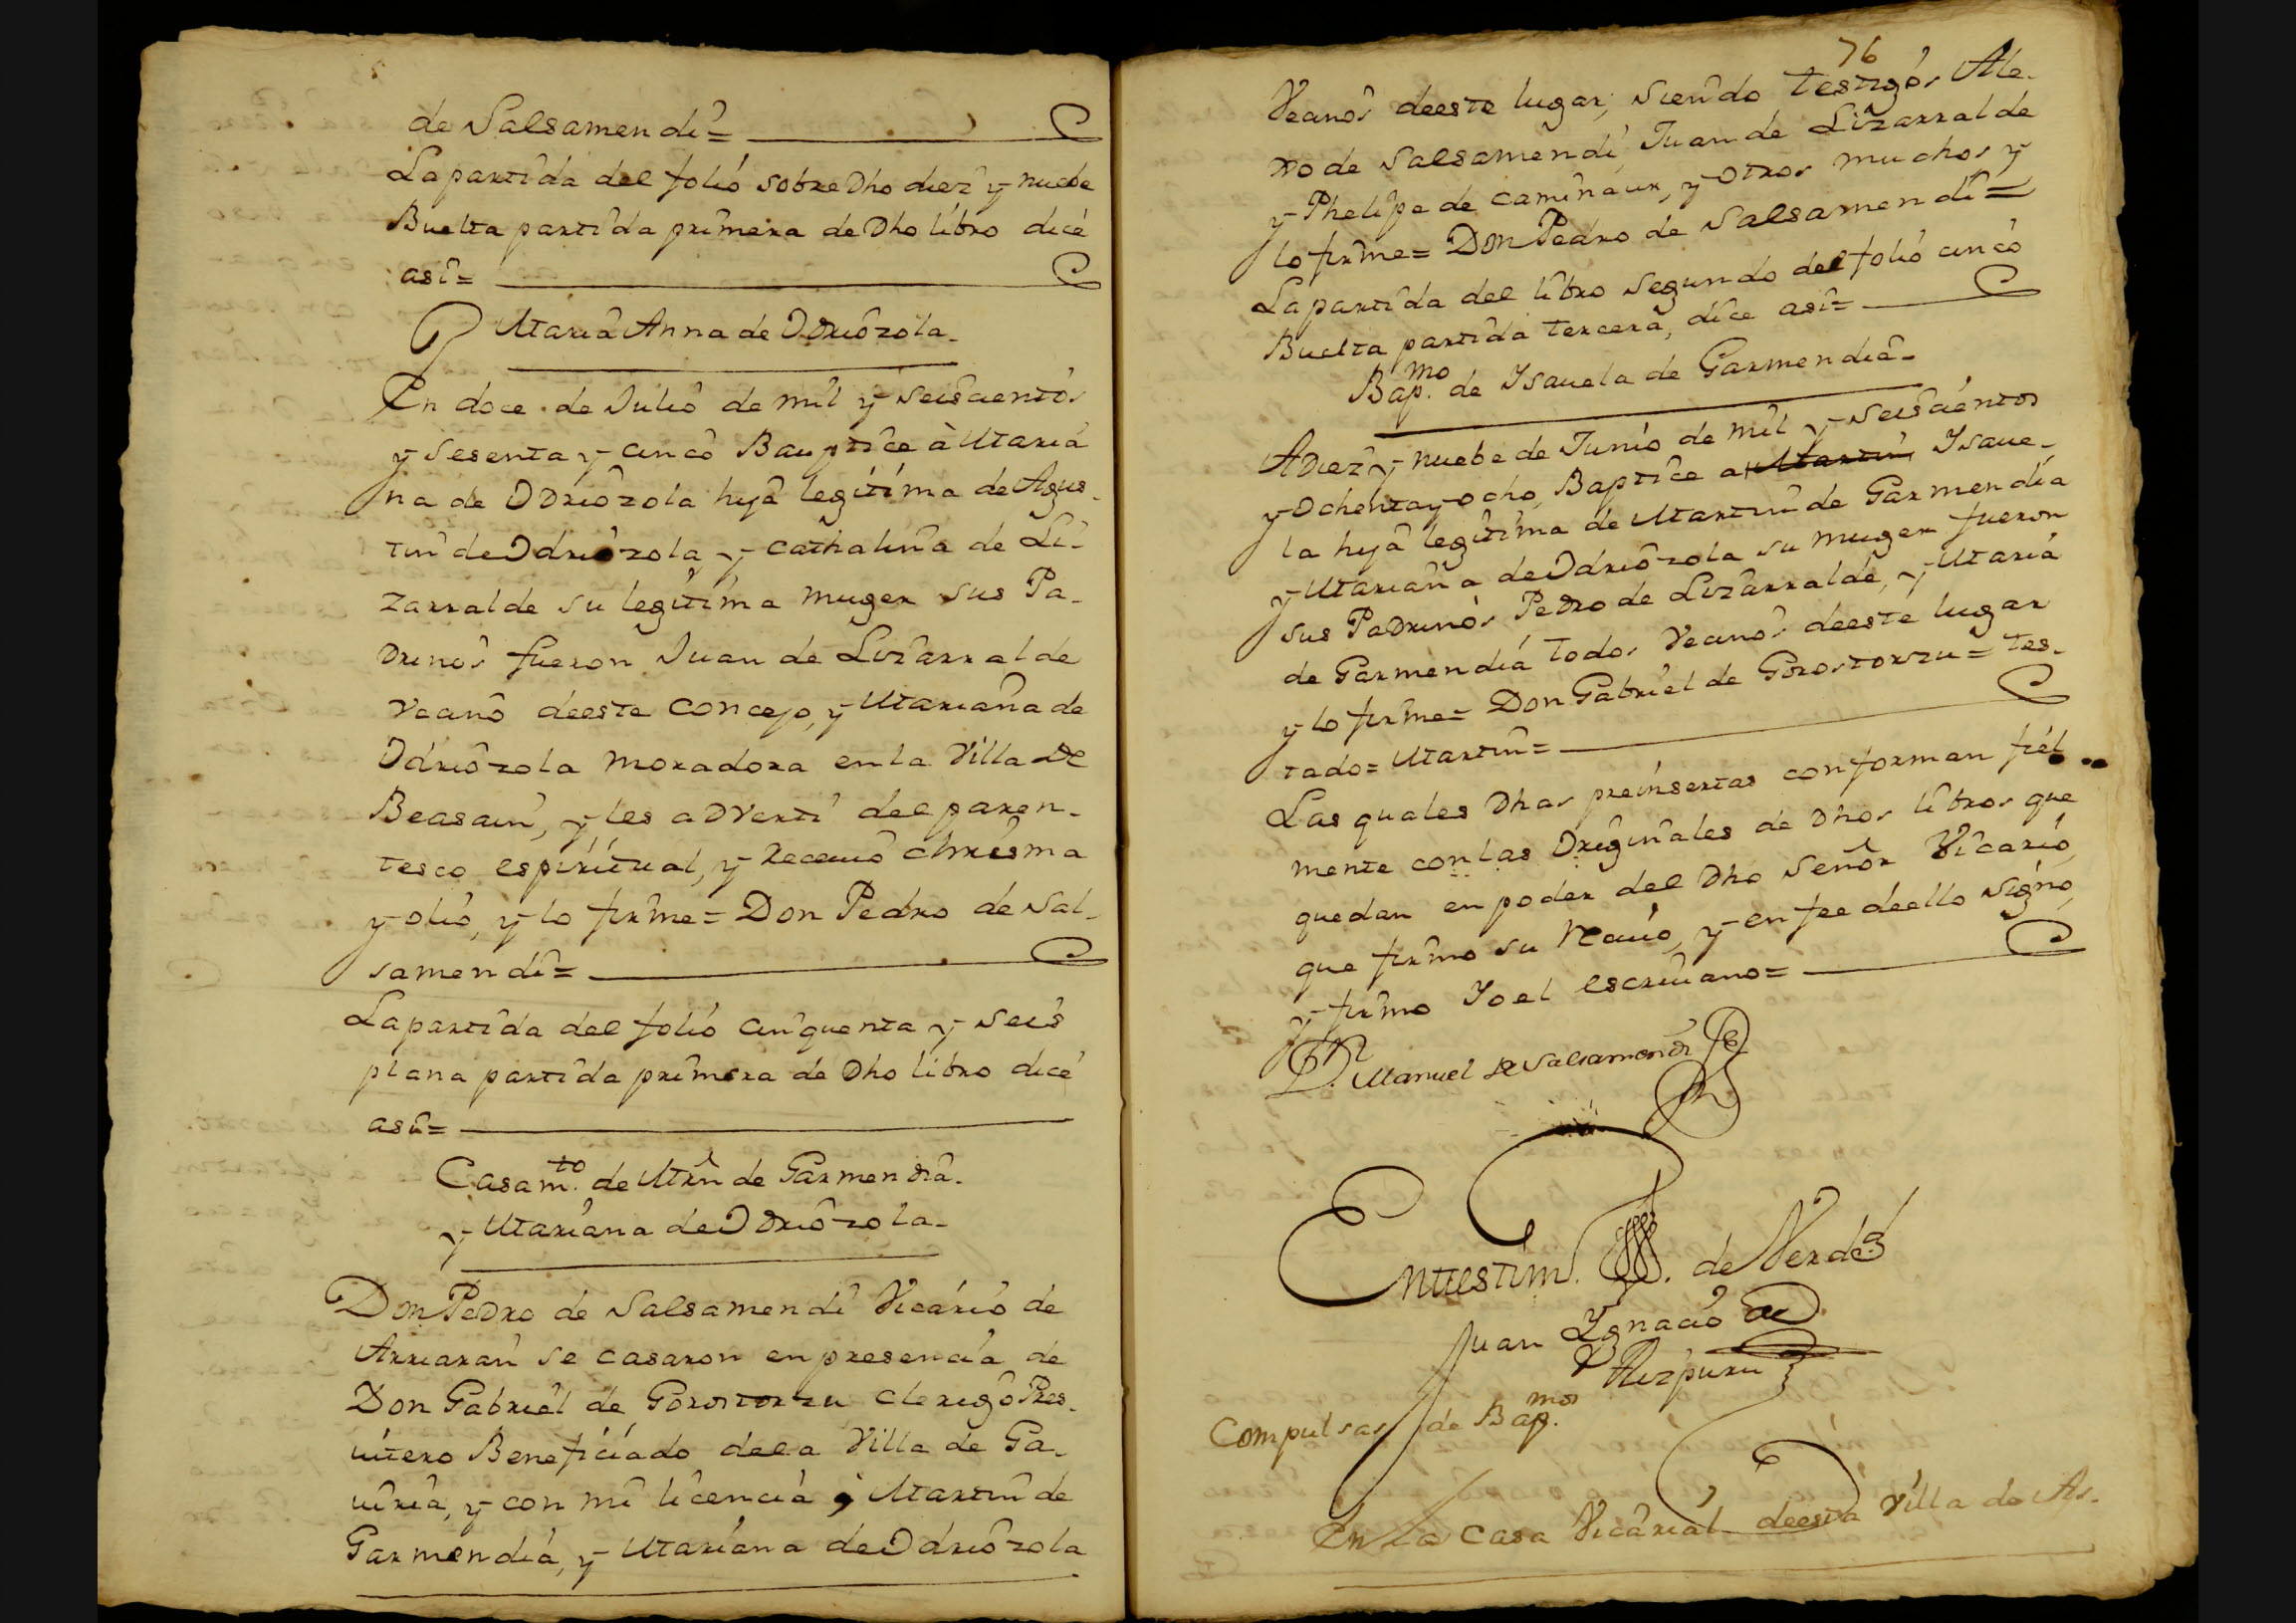 de Salsamendi=
La partida del folio sobre Dho diez y nuebe
Buelta partida primera de Dho libro dice
asi=
Maria Anna de Odriozola
En doce de Julio de mil y Seiscientos
y Sesenta y cinco Bauptice à Maria
na de Odriozola hija legitima de Agus-
tin de Odriozola, y Cathalina de Li-
zarralde su legitima muger sus Pa-
drinos fueron Juan de Lizarralde
vecino deeste concejo, y Mariana de
Odriozola moradora en la Villa de
Beasain, y les adverti del paren-
tesco espiritual, y Receuio chrisma
y olio, y lo firme= Don Pedro de Sal-
samendi=
La partida del folio cinquenta y Seis
plana partida primera de Dho libro dice
asi=
Casamto. de Mrn de Garmendia
y Mariana de Odriozola
Don Pedro de Salsamendi Vicario de
Arriaran se casaron en presencia de
Don Gabriel de Gorostorzu clerigo Pres-
uitero Beneficiado dela Villa de Ga-
uiria, y con mi licencia, Martin de
Garmendia, y Mariana de Odriozola
76
Vecinos deeste lugar, siendo testigos Ale-
xo de Salsamendi, Juan de Lizarralde
y Phelipe de Caminaur, y otros muchos y
lo firme= Don Pedro de Salsamendi=
La partida del libro Segundo del folio cinco
Buelta partida tercera, dice asi=
Bapmo. de Ysauela de Garmendia
A Diez y nuebe de Junio de mil y Seiscientos
y ochenta y ocho, Baptice a Martin Ysaue-
la hija legitima de Martin de Garmendia
y Mariana de Odriozola su muger fueron
sus Padrinos Pedro de Lizarralde, y Maria
de Garmendia todos Vecinos deeste lugar
y lo firme= Don Gabriel de Gorostorzu= tes-
tado= Martin=
Las quales Dhas preinsertas conforman fiel
mente con las Originales de Dhos libros que
quedan en poder del Dho Señor Vicario,
que firmo su Reciuo, y en fee deello Signo,
y firmo Yo el escriuano=
Dn. Manuel de Salsamendi
En testim. de Verdad
Juan Ygnacio de
Aizpuru
Compulsas de Bapmos.
En la Casa Vicarial deesta Villa de As-